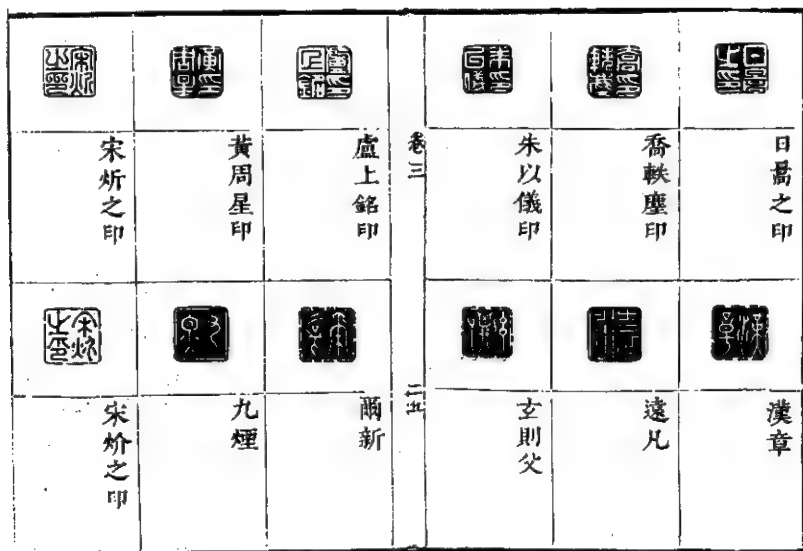 日暠之印
喬軼塵印
朱以儀印
漢章
遠凡
玄則父
卷三
二五
盧上銘印
黃周星印
宋炘之印
爾新
九煙
宋炌之印